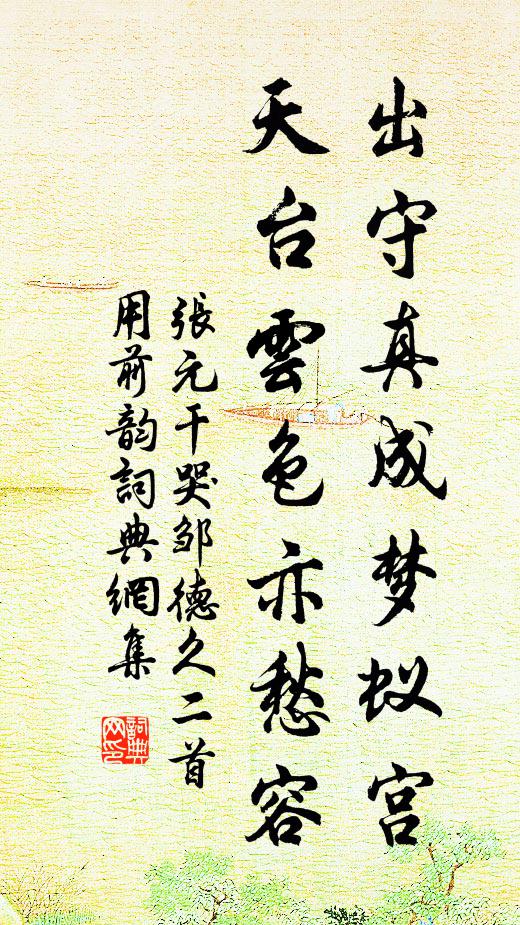 出守真成梦蚁宫
天台雲色亦愁容
張元干哭邹德久二首
用前韵詞典網集
詞典网印